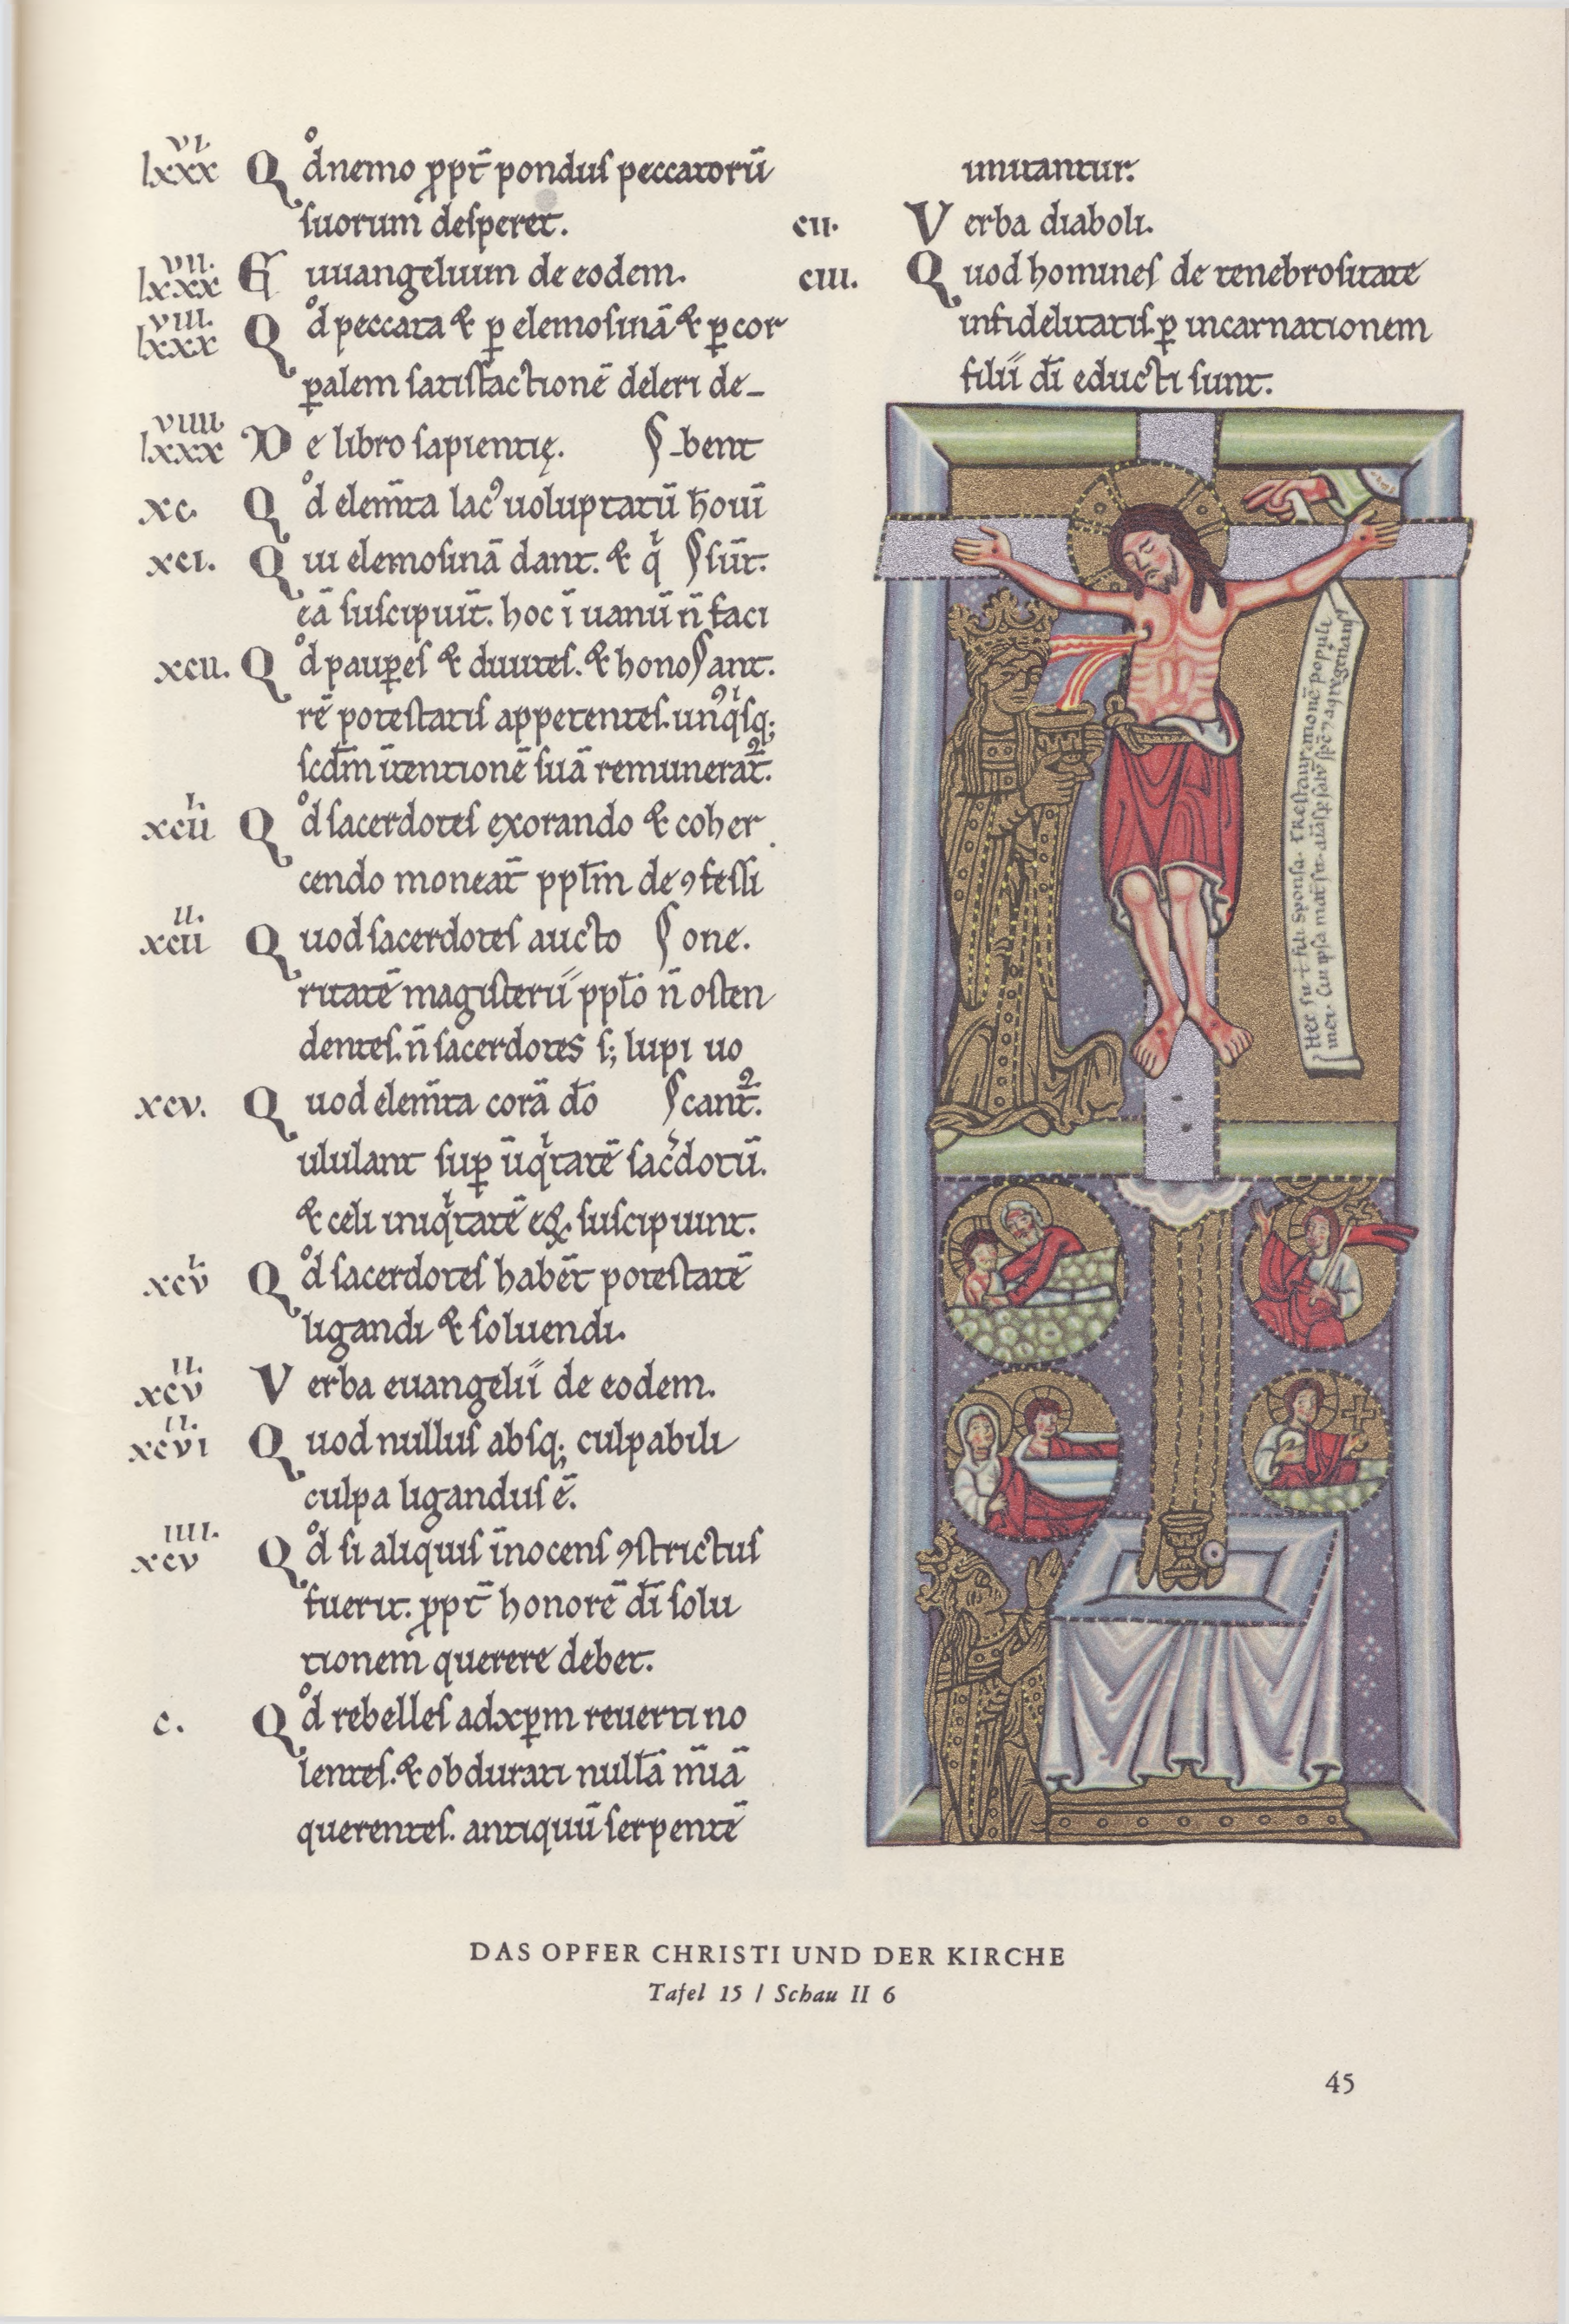 lxxxvi. Qd nemo ꝓpt̄ pondus peccatorū
suorum desperet.
lxxxvii. Euuangelium de eodem.
lxxxviii. Qd peccata & ꝑ elemosinā & ꝑ cor
ꝑalem satisfactionē deleri de-
lxxxviiii. De libro sapientię. bent
xc. Qd elem̄ta lac᾽ uoluptatū hōuī
xci. Qui elemosinā dant. & q sūt.
eā suscipiūt. hoc ī uanū n̄ faci
xcii. Qd pauꝑes & diuites. & hono ant.
rē potestatis appetentes. unqsq;
scdm ītentionē suā remunerat̄.
xciii. Qd sacerdotes exorando & coher
cendo moneāt ppl̄m de ꝯfessi
xciiii. Quod sacerdotes aucto one.
ritatē magisterii ppl̄o n̄ osten
dentes. n̄ sacerdotes s; lupi uo
xcv. Quod elem̄ta corā dō cant̄.
ululant suꝑ īiqtatē sacdotū.
& celi iniqtatē eoꝝ suscipiunt.
xcvi. Qd sacerdotes habēt potestatē
ligandi & soluendi.
xcvii. Verba euangelii de eodem.
xcviii. Quod nullus absq; culpabili
culpa ligandus ē.
xcviiii. Qd si aliquis īnocens ꝯstrictus
fuerit. ꝓpt̄ honorē dī solu
tionem querere debet.
c. Qd rebelles ad xꝑm reuerti no
lentes. & obdurati nullā mīam
querentes. antiquū serpentē
imitantur.
cii. Verba diaboli.
ciii. Quod homines de tenebrositate
infidelitatis ꝑ incarnationem
filii dī educti sunt.
DAS OPFER CHRISTI UND DER KIRCHE
Tafel 15 / Schau II 6
45